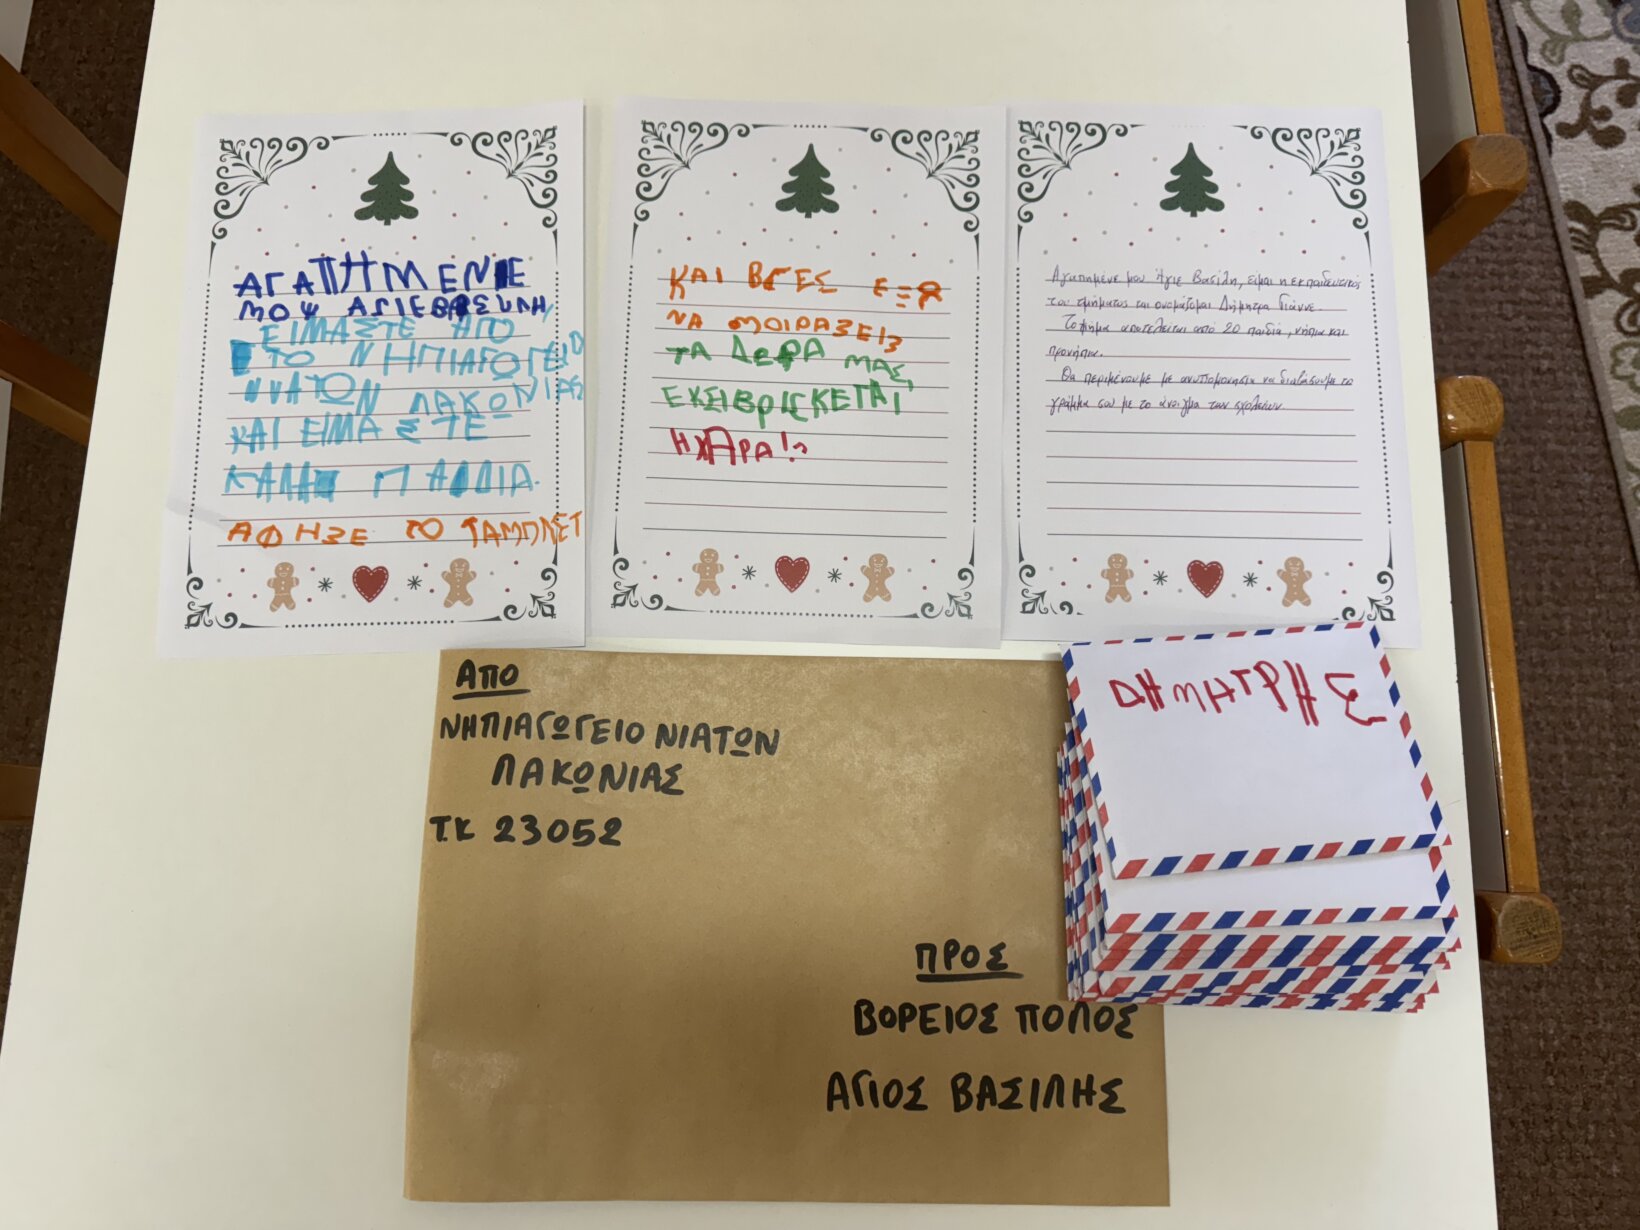 ΑΓΑΠΗΜΕΝΕ
ΜΟΨ ΑΓΙΕ ΒΑΣΙΛΗ
ΕΙΜΑΣΤΕ ΑΠΟ
ΤΟ ΝΗΠΙΑΓΩΓΕΙΟ
ΝΙΑΤΩΝ ΛΑΚΩΝΙΑΣ
ΚΑΙ ΕΙΜΑΣΤΕ
ΚΑΛΑ ΠΑΙΔΙΑ.
ΑΦΗΣΕ ΤΟ ΤΑΜΠΛΕΤ
ΚΑΙ ΒΓΕΣ ΕΞΩ
ΝΑ ΜΟΙΡΑΣΕΙΣ
ΤΑ ΔΩΡΑ ΜΑΣ,
ΕΚΣΙ ΒΡΙΣΚΕΤΑΙ
Η ΧΑΡΑ!
Αγαπημένε μου Άγιε Βασίλη, είμαι η εκπαιδευτικός
του τμήματος και ονομάζομαι Δήμητρα Γιάννε.
Το τμήμα αποτελείται από 20 παιδιά, νήπια και
προνήπια.
Θα περιμένουμε με ανυπομονησία να διαβάσουμε το
γράμμα σου με το άνοιγμα των σχολείων.
ΑΠΟ
ΝΗΠΙΑΓΩΓΕΙΟ ΝΙΑΤΩΝ
ΛΑΚΩΝΙΑΣ
Τ.Κ 23052
ΔΗΜΗΤΡΗΣ
ΠΡΟΣ
ΒΟΡΕΙΟΣ ΠΟΛΟΣ
ΑΓΙΟΣ ΒΑΣΙΛΗΣ